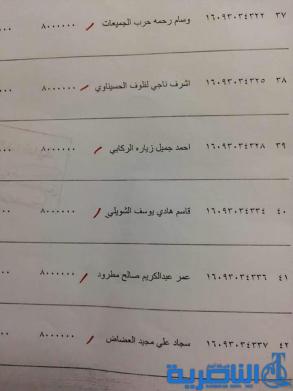 ٣٧ ١٦٠٩٣٠٣٤٣٢٢ وسام رحمه حرب الجميعات ٨٠٠٠٠٠٠
٣٨ ١٦٠٩٣٠٣٤٣٢٥ اشرف ناجي لفلوف الحسيناوي ٨٠٠٠٠٠٠
٣٩ ١٦٠٩٣٠٣٤٣٢٨ احمد جميل زياره الركابي ٨٠٠٠٠٠٠
٤٠ ١٦٠٩٣٠٣٤٣٣٤ قاسم هادي يوسف الشويلي ٨٠٠٠٠٠٠
٤١ ١٦٠٩٣٠٣٤٣٣٦ عمر عبدالكريم صالح مطرود ٨٠٠٠٠٠٠
٤٢ ١٦٠٩٣٠٣٤٣٣٧ سجاد علي مجيد العضاض ٨٠٠٠٠٠٠
الناصرية